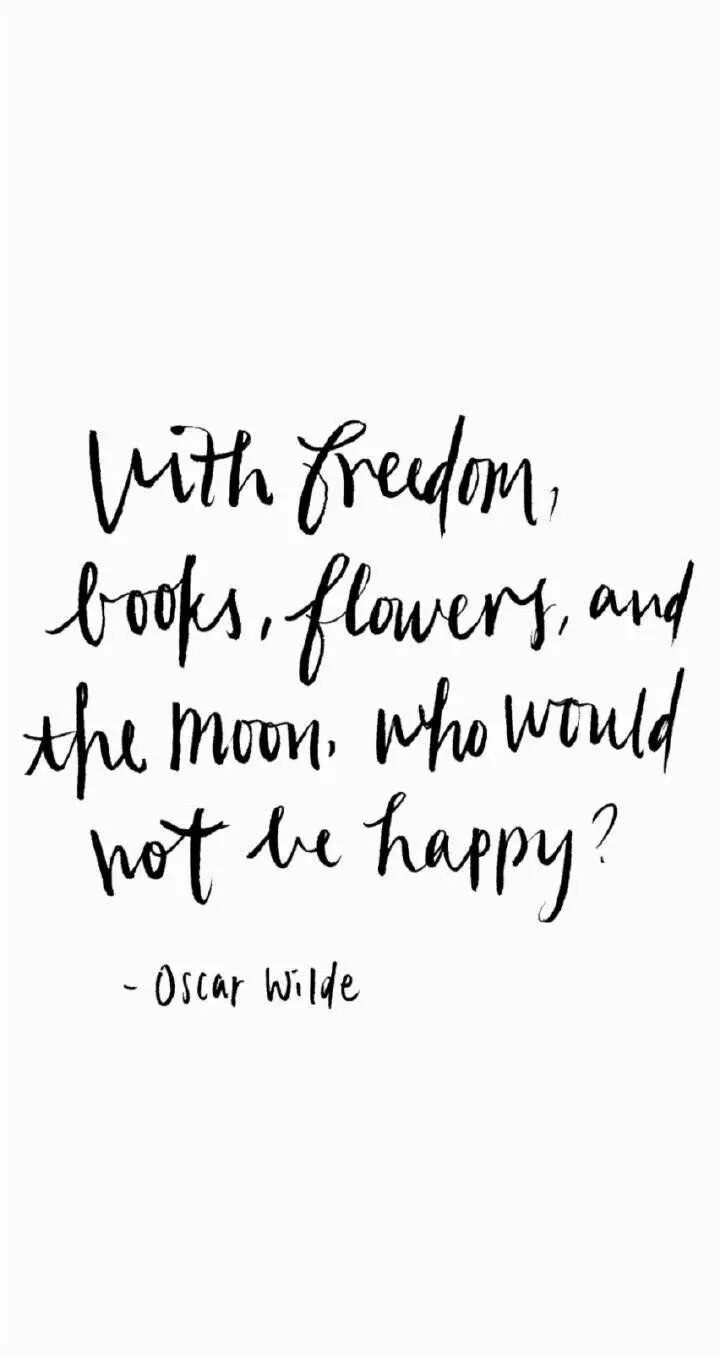 With freedom,
books, flowers, and
the moon, who would
not be happy?
- Oscar Wilde